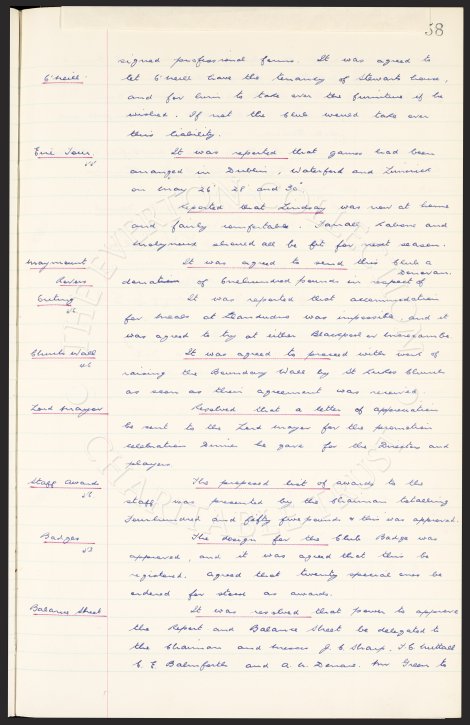 58
signed professional forms. It was agreed to
O'Neill. let O'Neill have the tenancy of Stewarts house,
and for him to take over the furniture if he
wished. If not the Club would take over
this liability.
Eire Tour. It was reported that games had been
arranged in Dublin, Waterford and Limerick
on May 26' 28' and 30'
Reported that Lindsay was now at home
and fairly comfortable. Farrall, and
should all be fit for next season.
It was agreed to send this Club a
Donovan.
Rovers donation of Onehundred pounds in respect of
Outing It was reported that accommodation
for meals at Llandudno was impossible and it
was agreed to try at either Blackpool or Morecambe.
Church Wall It was agreed to proceed with work of
raising the Boundary Wall by St Lukes Church
as soon as their agreement was received.
Lord Mayor Resolved that a letter of appreciation
be sent to the Lord Mayor for the promotion
celebration Dinner he gave for the Directors and
players.
Staff Awards The proposed list of awards to the
staff was presented by the Chairman totalling
Fourhundred and fifty five pounds & this was approved.
Badges The design for the Club Badge was
approved, and it was agreed that this be
registered. Agreed that twenty special ones be
ordered for stock as awards.
Balance Sheet It was resolved that power to approve
the Report and Balance Sheet be delegated to
the Chairman and Messrs J. C. Sharp. T. C. Nuttall
C. E. Balmforth and A. W. Denaro. Mr Green to
THE EVERTON COLLECTION
CHARITABLE TRUST